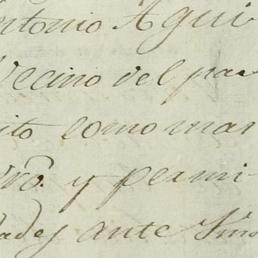 ntonio Agui
Vecino del par
ito como mar
rro. y permi-
ades ante